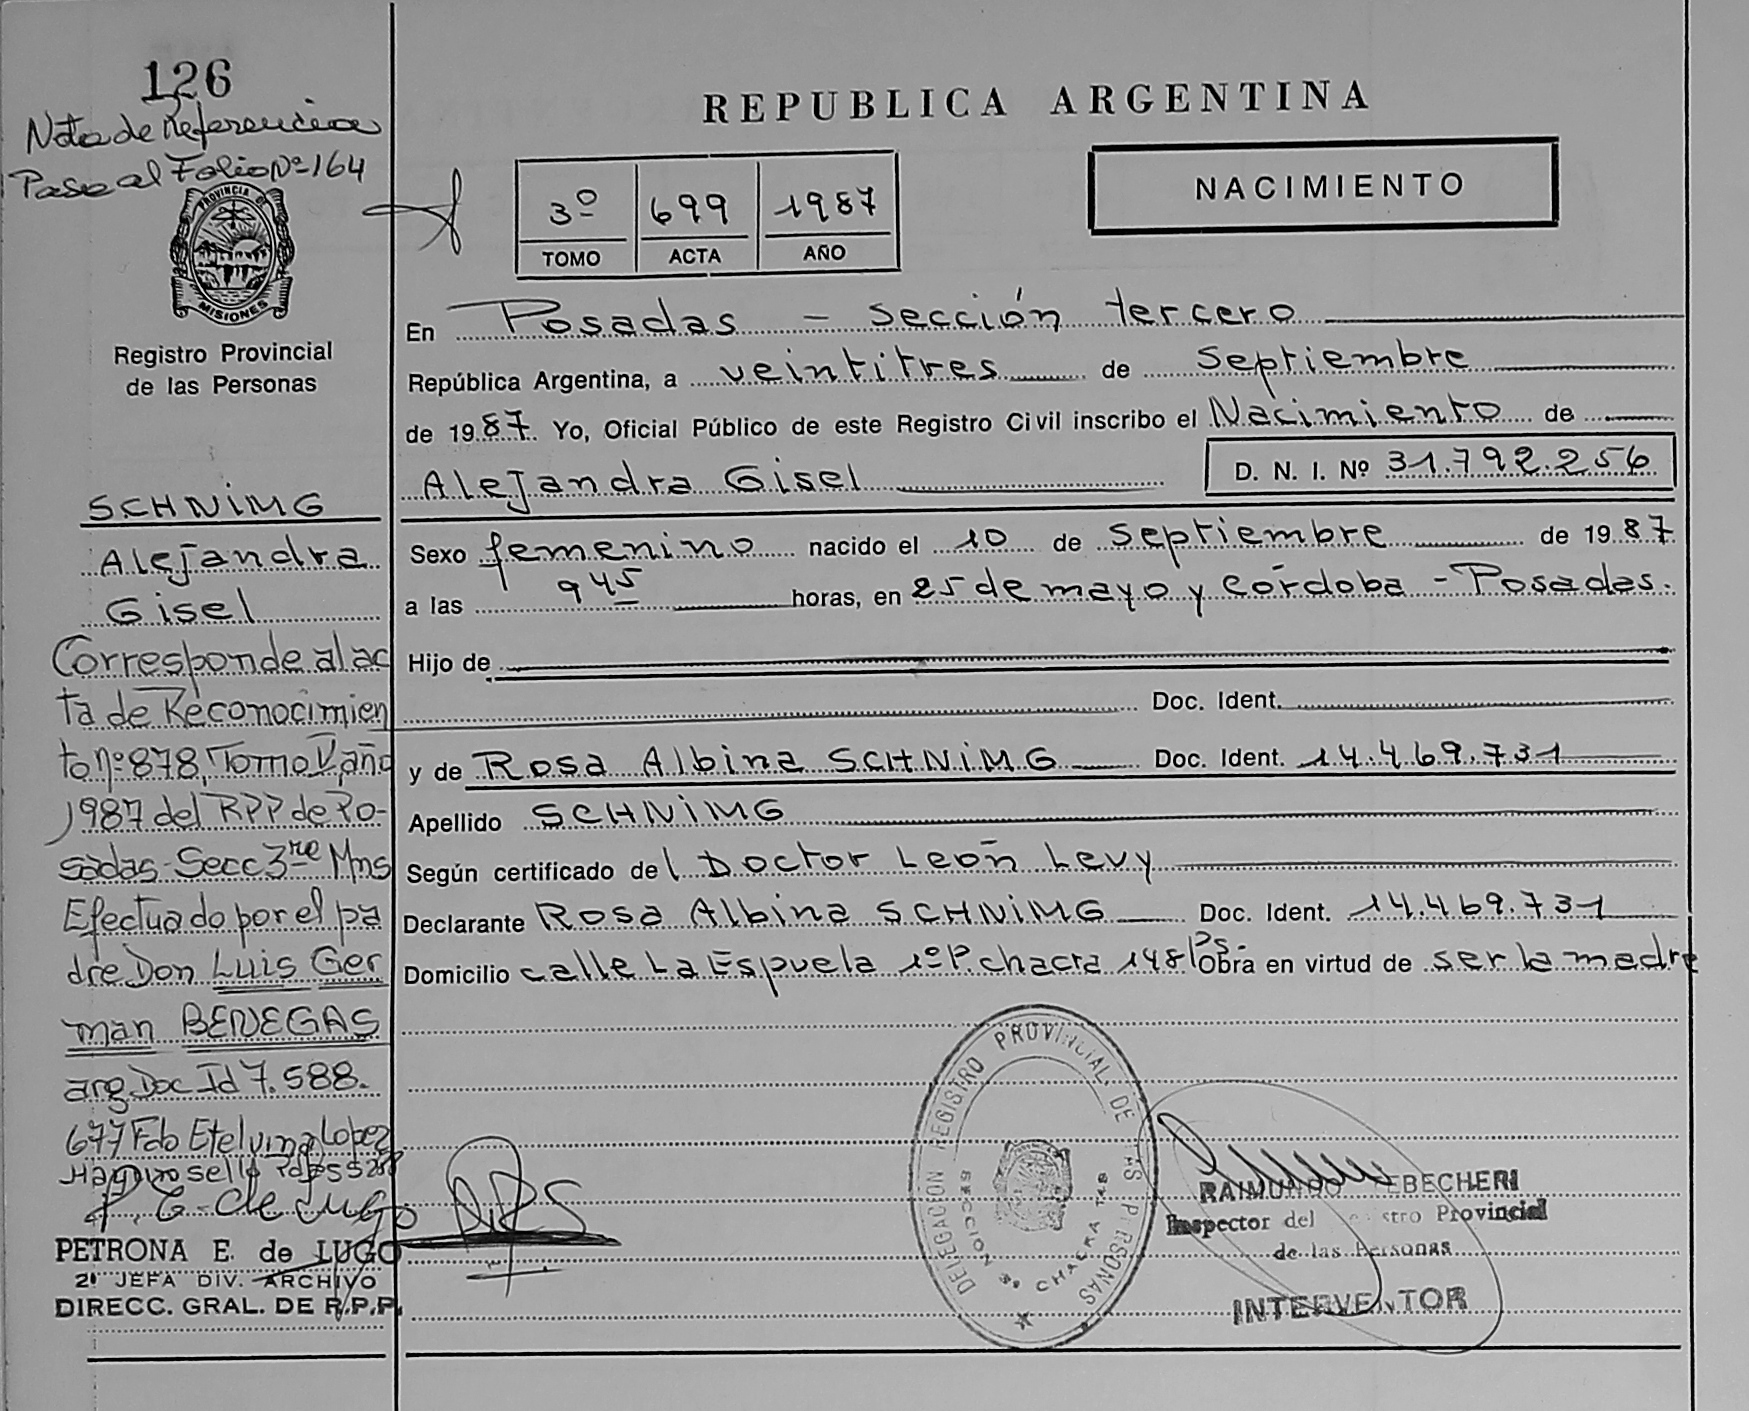 126
Nota de Referencia
Pase al Folio Nº 164
PROVINCIA DE
MISIONES
Registro Provincial
de las Personas
SCHNiMG
Alejandra
Gisel
Corresponde al ac
ta de Reconocimien
to nº 878, Tomo V, año
1987 del RPP de Po-
sadas-Secc 3ra Mns
Efectuado por el pa
dre Don Luis Ger
man BENEGAS
arg Doc Id 7.588.
677 Fdo Etelvina Lopez
PETRONA E. de LUGO
2º JEFA DIV. ARCHIVO
DIRECC. GRAL. DE R.P.P.
REPUBLICA ARGENTINA
3º 699 1987
TOMO ACTA AÑO
NACIMIENTO
En Posadas - sección tercero
República Argentina, a veintitres de septiembre
de 1987. Yo, Oficial Público de este Registro Civil inscribo el Nacimiento de
Alejandra Gisel D. N. I. Nº 31.792.256
Sexo femenino nacido el 10 de septiembre de 1987
a las 945 horas, en 25 de mayo y córdoba - Posadas.
Hijo de
Doc. Ident.
y de Rosa Albina SCHNiMG Doc. Ident. 14.469.731
Apellido SCHNiMG
Según certificado del Doctor León Levy
Declarante Rosa Albina SCHNiMG Doc. Ident. 14.469.731
Domicilio calle La Espuela 1ºP. chacra 148 Ps Obra en virtud de ser la madre
DELEGACION REGISTRO PROVINCIAL DE LAS PERSONAS
SECCION 3ª CHACRA 148
RAIMUNDO EBECHERI
Inspector del Registro Provincial
de las Personas
INTERVENTOR